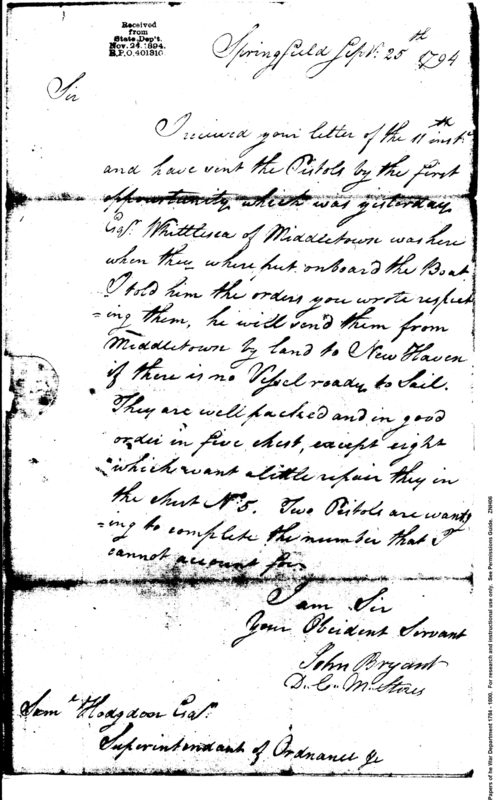 Received
from
State Dep't.
Nov. 24. 1894.
R.P.O. 401310
Springfield Sept. 25th 1794
Sir
I recieved your letter of the 11th inst.
and have sent the Pistols by the first
oppourtunity which was yesterday
Esqr. Whittlesea of Middletown was here
when they where put onboard the Boat
I told him the orders you wrote respect
=ing them, he will send them from
Middletown by land to New Haven
if there is no Vessel ready to Sail.
They are well packed and in good
order in five chest, except eight
which want a little repair they in
the chest No. 5. Two Pistols are want
=ing to complete the number that I
cannot account for.
I am Sir
Your Obeident Servant
John Bryant
D. C. M. Stores
Saml. Hodgdon Esqr.
Superintendant of Ordnance &c
Papers of he War Department 1784 - 1800. For research and instructional use only. See Permissions Guide. ZNH06